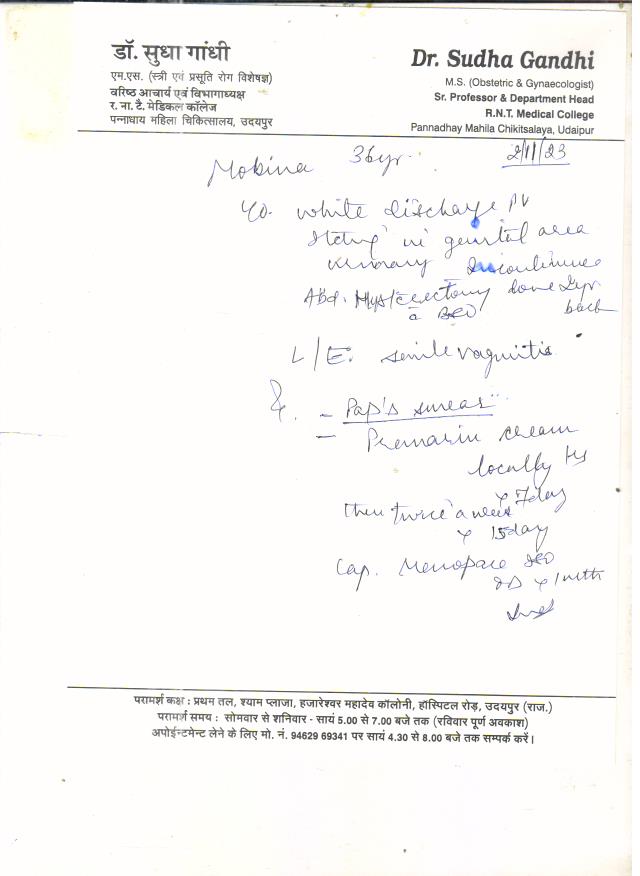 डॉ. सुधा गांधी
एम.एस. (स्त्री एवं प्रसूति रोग विशेषज्ञ)
वरिष्ठ आचार्य एवं विभागाध्यक्ष
र. ना. टै. मेडिकल कॉलेज
पन्नाधाय महिला चिकित्सालय, उदयपुर
Dr. Sudha Gandhi
M.S. (Obstetric & Gynaecologist)
Sr. Professor & Department Head
R.N.T. Medical College
Pannadhay Mahila Chikitsalaya, Udaipur
2/11/23
Mobina 36yr.
C/o. white discharge PV
Itching in genital area
Urinary Incontinence
Abd. Hysterectomy done
back
L/E. senile vaginitis
- Pap's smear
- Premarin cream
locally HS
x 7day
then twice a week
x 15day
Cap. Menopace
OD x 1 mth
परामर्श कक्ष : प्रथम तल, श्याम प्लाजा, हजारेश्वर महादेव कॉलोनी, हॉस्पिटल रोड़, उदयपुर (राज.)
परामर्श समय : सोमवार से शनिवार - सायं 5.00 से 7.00 बजे तक (रविवार पूर्ण अवकाश)
अपोईन्टमेन्ट लेने के लिए मो. नं. 94629 69341 पर सायं 4.30 से 8.00 बजे तक सम्पर्क करें।